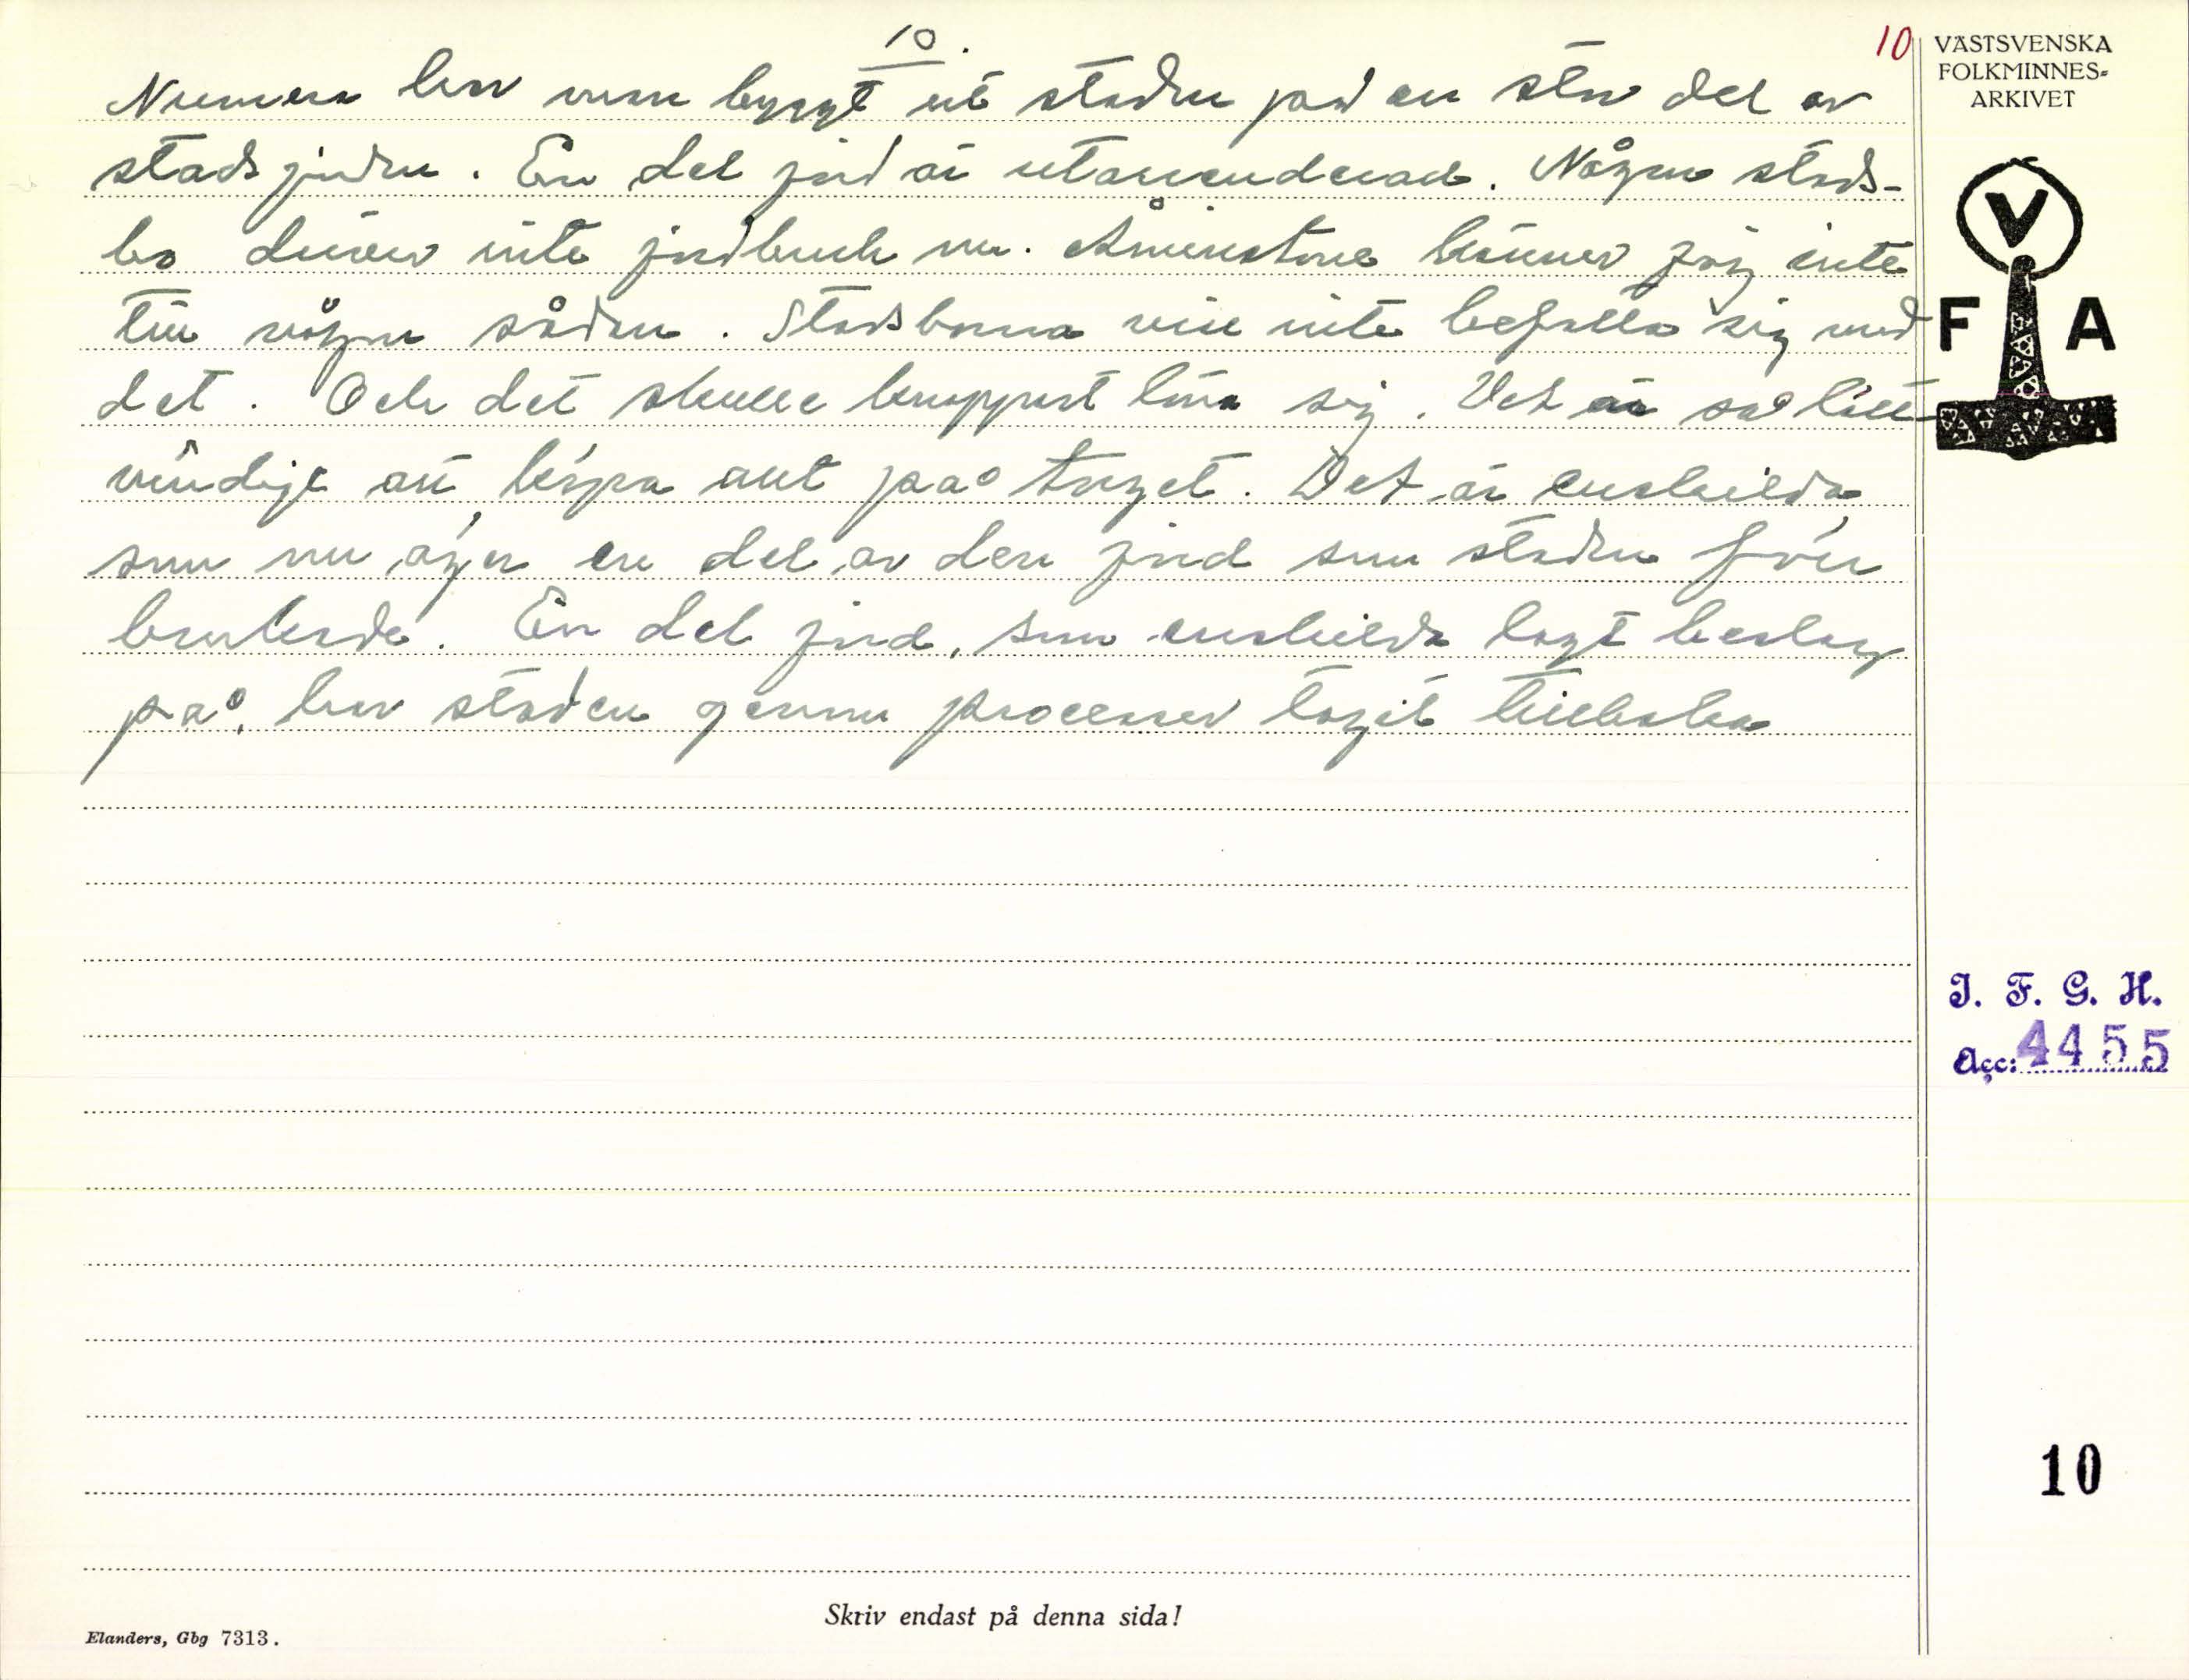 10.
10
VÄSTSVENSKA
FOLKMINNES=
ARKIVET
Numera har man byggt ut staden på en stor del av
stadsjorden. En del jord är utarrenderad. Någon stads-
bo driver inte jordbruk nu. Åminstone känner jag inte
till någon sådan. Stadsborna vill inte befatta sig med
det. Och det skulle knappast löna sig. Det är så lätt-
vindigt att köpa allt på torget. Det är enskilda,
som nu äger en del av den jord som staden förr
brukade. En del jord, som enskilda lagt beslag
på, har staden genom processer tagit tillbaka
V
F A
I. F. G. H.
Acc: 4455
10
Skriv endast på denna sida!
Elanders, Gbg 7313.